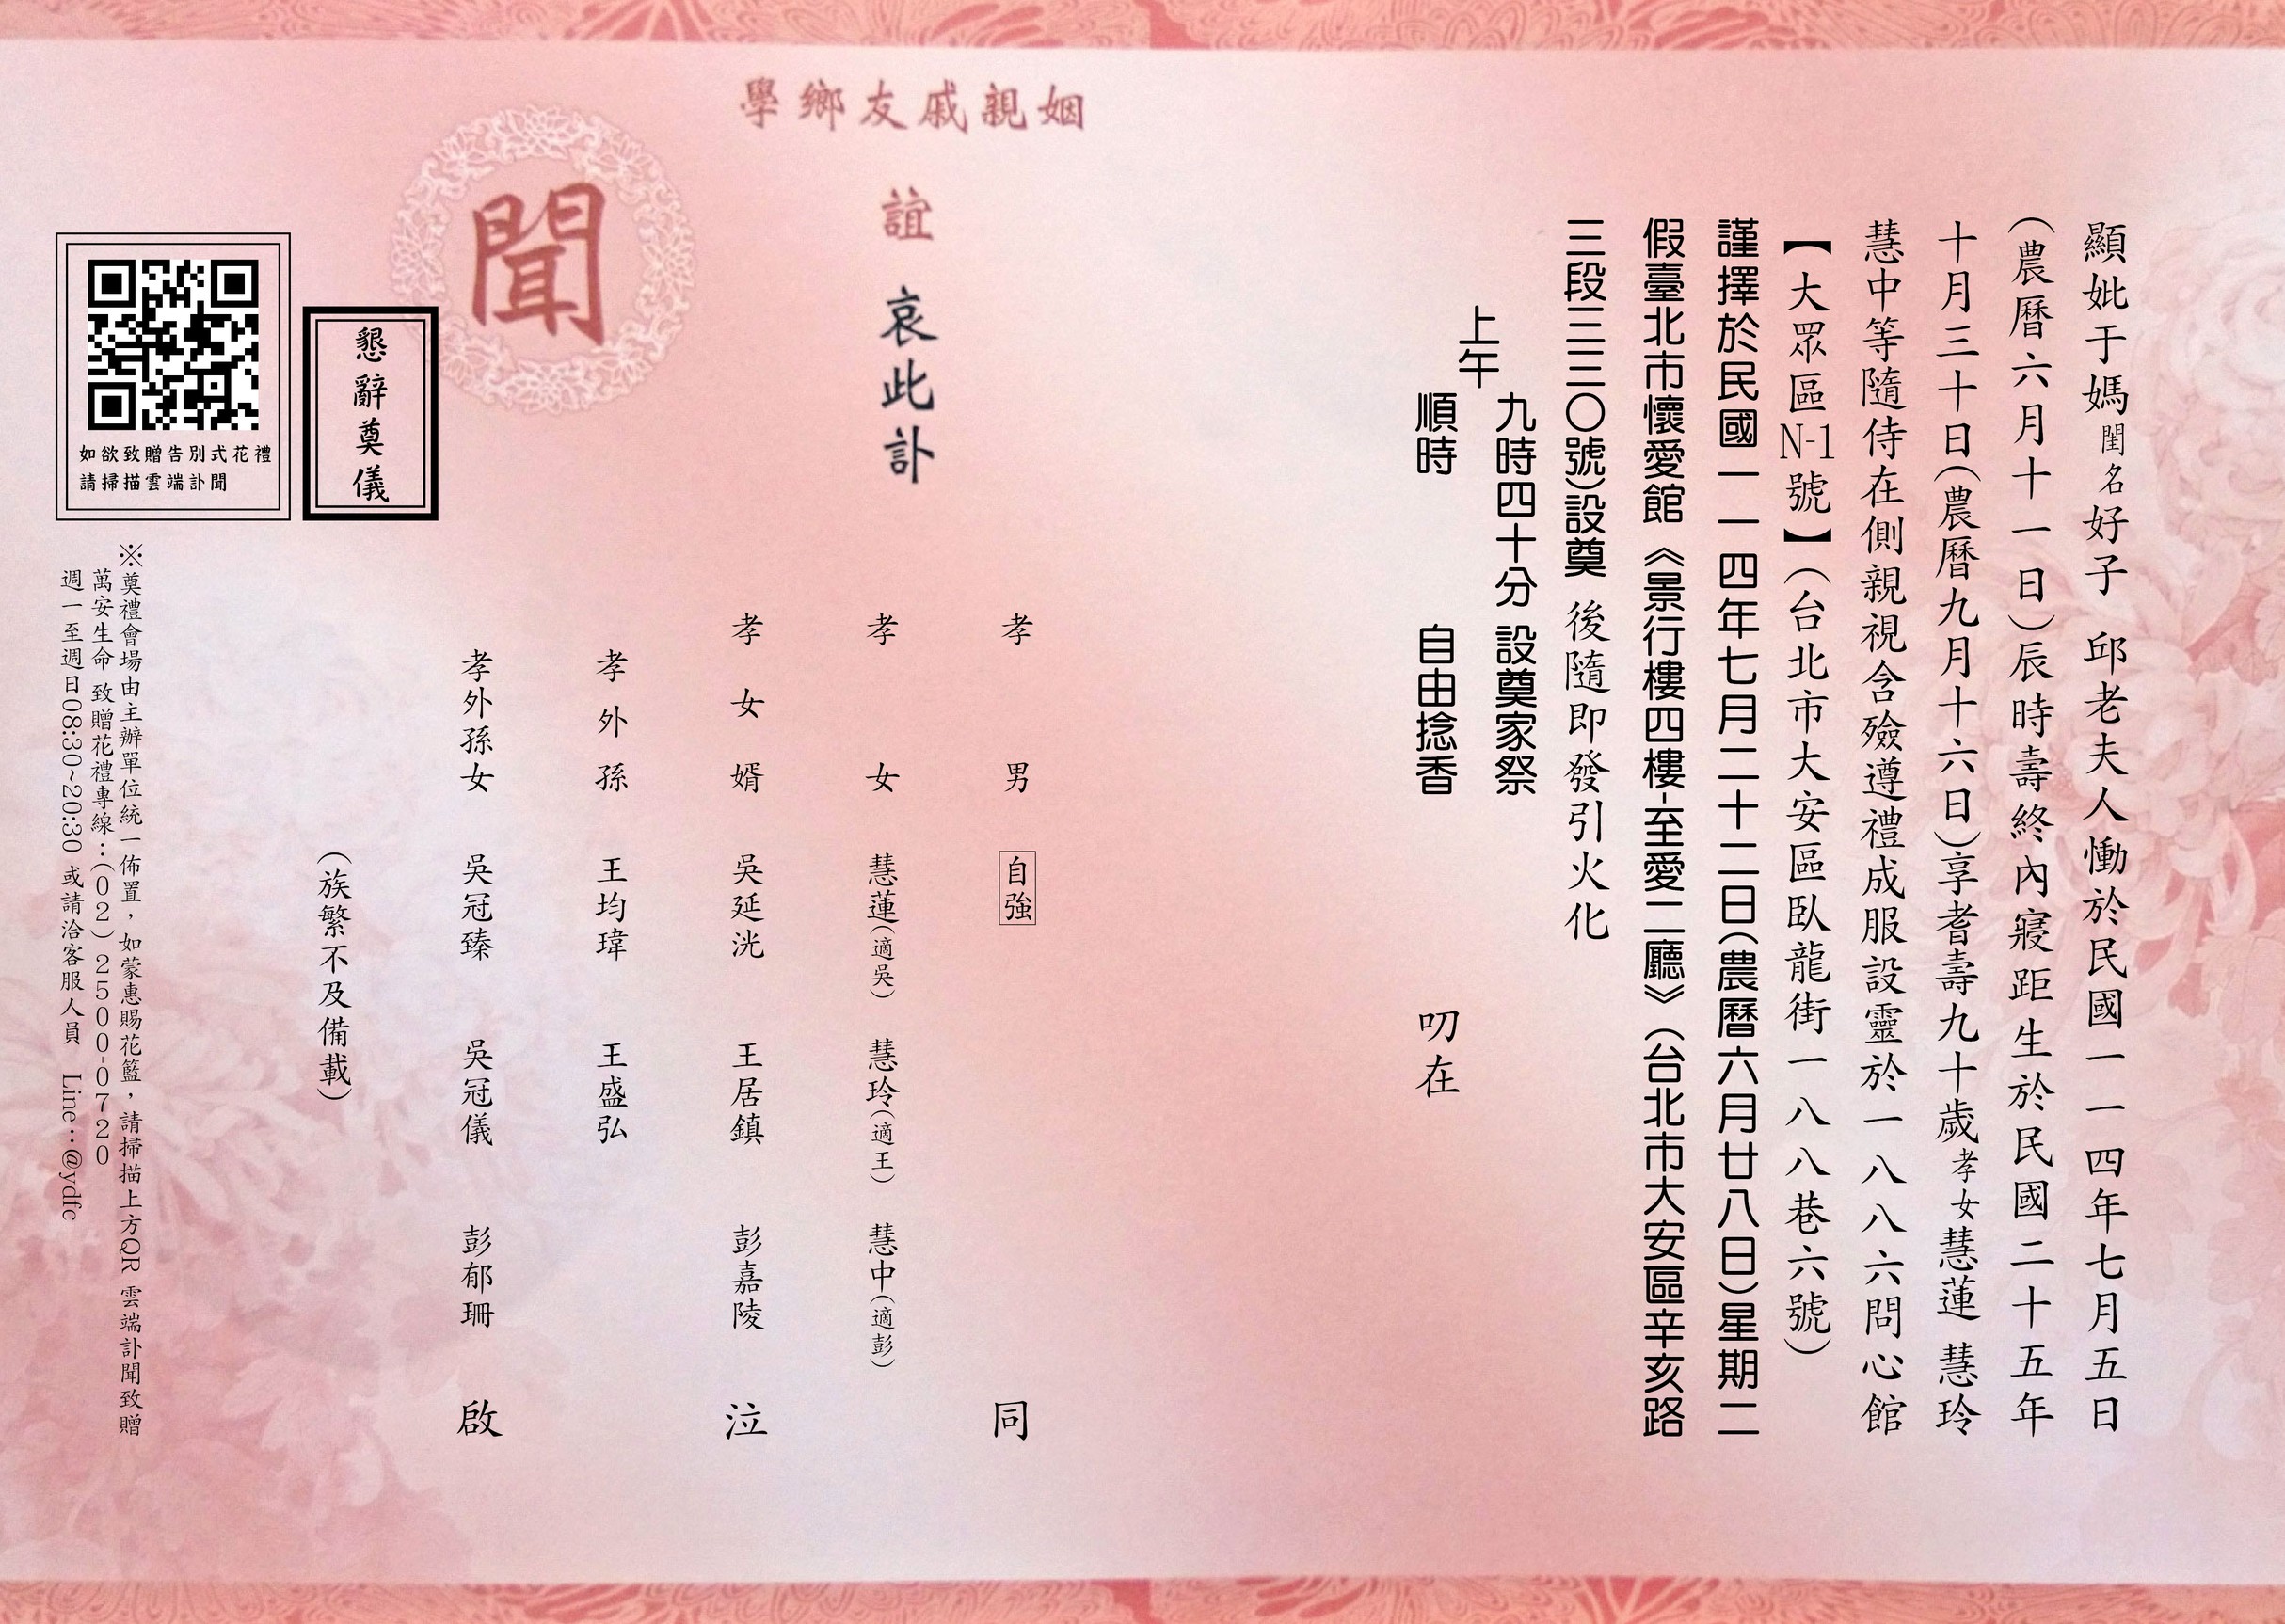 顯妣于媽閨名好子 邱老夫人慟於民國一一四年七月五日
(農曆六月十一日)辰時壽終內寢距生於民國二十五年
十月三十日(農曆九月十六日)享耆壽九十歲孝女慧蓮 慧玲
慧中等隨侍在側親視含殮遵禮成服設靈於一八八六問心館
【大眾區N-1號】(台北市大安區臥龍街一八八巷六號)
謹擇於民國一一四年七月二十二日(農曆六月廿八日)星期二
假臺北市懷愛館《景行樓四樓-至愛二廳》(台北市大安區辛亥路
三段三三〇號)設奠 後隨即發引火化
上午
九時四十分 設奠家祭
順時 自由捻香
叨在
姻親戚友鄉學
誼 哀此訃
聞
孝男 自強 同
孝女 慧蓮(適吳) 慧玲(適王) 慧中(適彭)
孝女婿 吳延洸 王居鎮 彭嘉陵 泣
孝外孫 王均瑋 王盛弘
孝外孫女 吳冠臻 吳冠儀 彭郁珊 啟
(族繁不及備載)
懇辭奠儀
如欲致贈告別式花禮
請掃描雲端訃聞
※奠禮會場由主辦單位統一佈置，如蒙惠賜花籃，請掃描上方QR 雲端訃聞致贈
萬安生命 致贈花禮專線：(02)2500-0720
週一至週日08:30~20:30 或請洽客服人員 Line：@ydfe